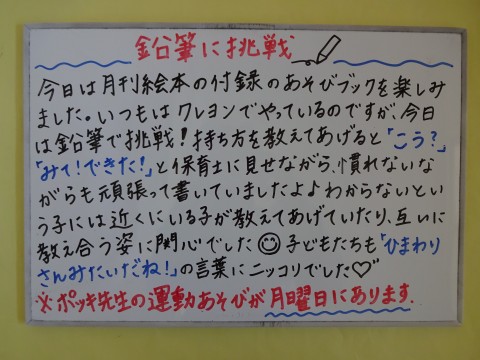 鉛筆に挑戦
今日は月刊絵本の付録のあそびブックを楽しみ
ました。いつもはクレヨンでやっているのですが、今日
は鉛筆で挑戦!持ち方を教えてあげると「こう?」
「みて!できた!」と保育士に見せながら、慣れないな
がらも頑張って書いていましたよ♪わからないとい
う子には近くにいる子が教えてあげていたり、互いに
教え合う姿に関心でした😊子どもたちも「ひまわり
さんみたいだね!」の言葉にニッコリでした♡
※ポッキ先生の運動あそびが月曜日にあります.